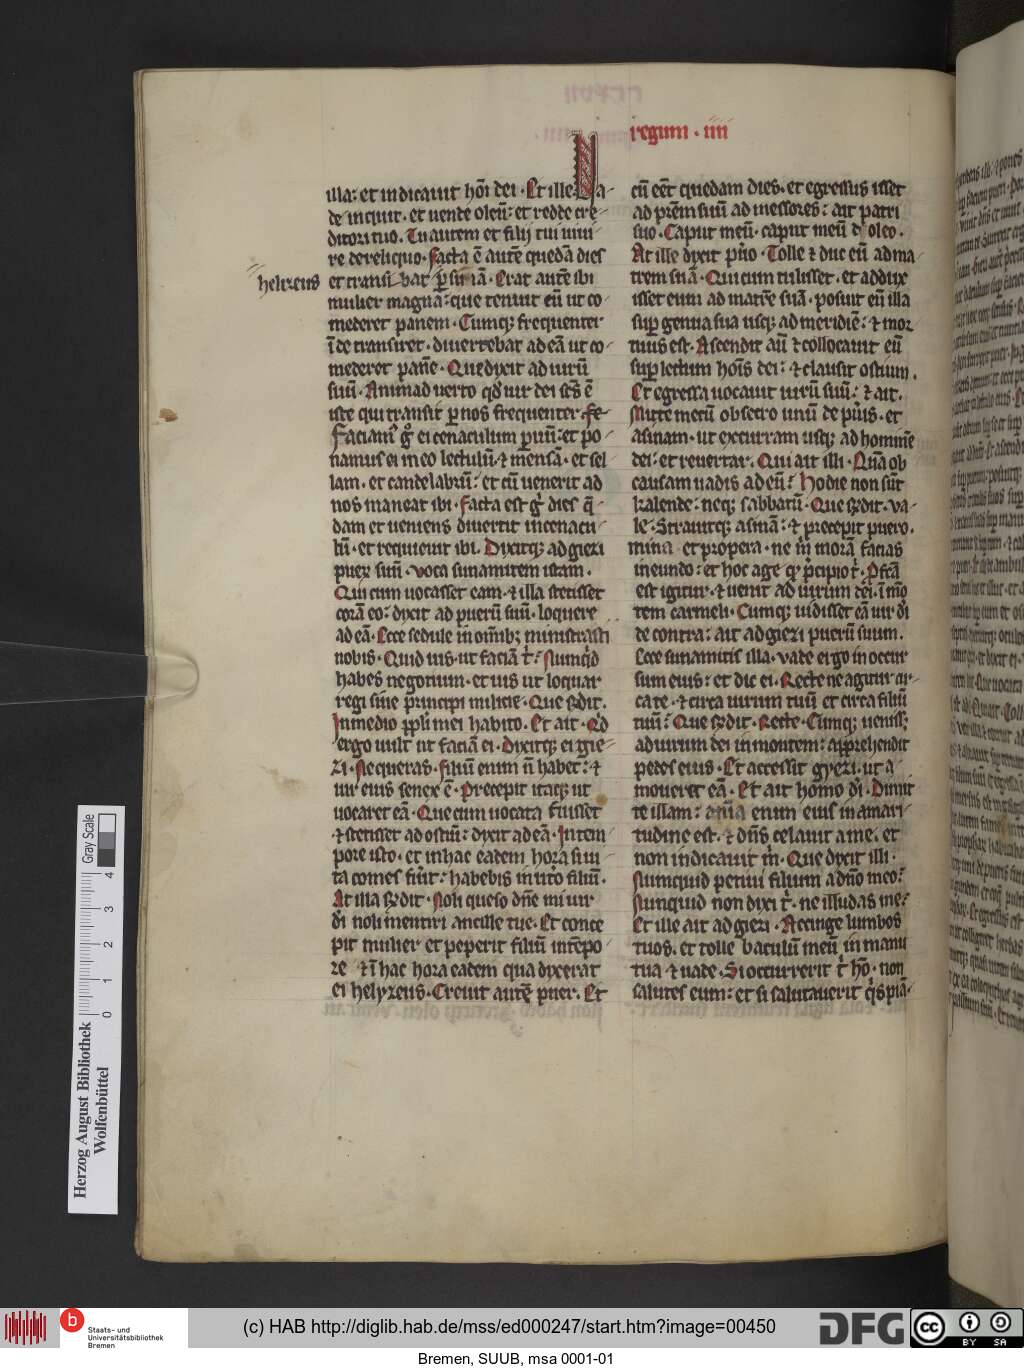 regum · iiii
illa: et indicauit hoi dei · Et ille Ua-
de inquit · et uende oleu: et redde cre-
ditori tuo. Tu autem et filij tui uiui-
te de reliquo · Facta e aute queda dies
helyzeus
et transi bat p sunã · Erat aute ibi
mulier magna: que tenuit eu ut co-
mederet panem · Cumq; frequenter
ide transiret · diuertebat ad ea ut co-
mederet pane · Que dixit ad uiru
suu · Animaduerto qd uir dei scs e
iste qui transit p nos frequenter · fe-
Faciam g ei cenaculum puu: et po-
namus ei in eo lectulu · et mensa · et sel-
lam · et candelabru: et cu uenerit ad
nos maneat ibi · Facta est g dies q-
dam et ueniens diuertit in cenacu-
lu · et requieuit ibi. Dixitq; ad giezi
puer suu · voca sunamitem istam ·
Qui cum uocasset eam · et illa stetisset
cora eo: dixit ad pueru suu · loquere
ad ea · Ecce sedule in omib; ministrasti
nobis · Quid uis ut facia t: Numqd
habes negotium · et uis ut loquar
regi siue principi milicie · Que rndit.
In medio ppli mei habito. Et ait · Qd
ergo uult ut facia ei · Dixitq; ei gie-
zi · Ne queras · filiu enim n habet: et
uir eius senex e · Precepit itaq; ut
uocaret ea · Que cum uocata fuisset
et stetisset ad ostiu: dixit ad ea · In tem-
pore isto · et in hac eadem hora si ui-
ta comes fuit: habebis in utero filiu.
At illa rndit · Noli queso dne mi uir
di noli mentiri ancille tue · Et conce
pit mulier et peperit filiu in tepo-
re et i hac hora eadem qua dixerat
ei helyzeus · Creuit aute puer. Et
cu eet quedam dies · et egressus isset
ad prem suu ad messores: ait patri
suo · Caput meu · caput meu doleo.
At ille dixit puo · Tolle et duc eu ad ma-
trem sua · Qui cum tulisset · et addux
isset eum ad matre sua · posuit eu illa
sup genua sua usq; ad meridie: et mor
tuus est · Ascendit au et collocauit eu
sup lectum hois dei: et clausit ostium.
Et egressa uocauit uiru suu: et ait.
Mitte mecu obsecro unu de puis · et
asinam · ut excurram usq; ad homine
dei: et reuertar. Qui ait illi · Qua ob
causam uadis ad eu: Hodie non sut
kalende: neq; sabbatu · Que rndit · va-
le · Strauitq; asina: et precepit puero.
mina et propera · ne m mora facias
in eundo: et hoc age q pcipio t. Pfca
est igitur · et uenit ad uirum dei · i mo
tem carmeli · Cumq; uidisset ea uir di
de contra: ait ad giezi pueru suum.
Ecce sunamitis illa · vade ergo in occur
sum eius: et dic ei · Recte ne agitur cir-
ca te · et circa uirum tuu et circa filiu
tuu: Que rndit · Recte · Cumq; uenisset
ad uirum dei in montem: apprehendit
pedes eius · Et accessit gyezi · ut a-
moueret ea · Et ait homo di · Dimit
te illam: ania enim eius in amari-
tudine est · et dns celauit a me · et
non indicauit m · Que dixit illi ·
Numquid petiui filium a dno meo:
Nunquid non dixi t · ne illudas me:
Et ille ait ad giezi · Accinge lumbos
tuos · et tolle baculu meu in manu
tua et uade · Si occurrerit t ho · non
salutes eum: et si salutauerit qs pia-
Gray Scale
0 1 2 3 4
Herzog August Bibliothek
Wolfenbüttel
b
Staats- und
Universitätsbibliothek
Bremen
(c) HAB http://diglib.hab.de/mss/ed000247/start.htm?image=00450
DFG
cc
BY SA
Bremen, SUUB, msa 0001-01